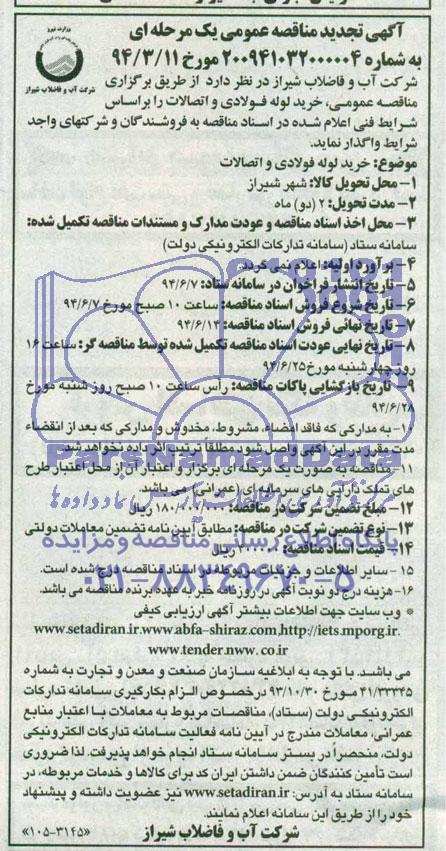 آگهی تجدید مناقصه عمومی یک مرحله ای
به شماره ۲۰۰۹۴۱۰۳۲۰۰۰۰۰۴ مورخ ۹۴/۳/۱۱
وزارت نیرو
شرکت آب و فاضلاب شیراز
شرکت آب و فاضلاب شیراز در نظر دارد از طریق برگزاری
مناقصه عمومی، خرید لوله فولادی و اتصالات را براساس
شرایط فنی اعلام شده در اسناد مناقصه به فروشندگان و شرکتهای واجد
شرایط واگذار نماید.
موضوع: خرید لوله فولادی و اتصالات
۱- محل تحویل کالا: شهر شیراز
۲- مدت تحویل: ۲ (دو) ماه
۳- محل اخذ اسناد مناقصه و عودت مدارک و مستندات مناقصه تکمیل شده:
سامانه ستاد (سامانه تدارکات الکترونیکی دولت)
۴- برآورد اولیه: اعلام نمی گردد.
۵- تاریخ انتشار فراخوان در سامانه ستاد: ۹۴/۶/۷
۶- تاریخ شروع فروش اسناد مناقصه: ساعت ۱۰ صبح مورخ ۹۴/۶/۷
۷- تاریخ نهائی فروش اسناد مناقصه: ۹۴/۶/۱۴
۸- تاریخ نهایی عودت اسناد مناقصه تکمیل شده توسط مناقصه گر: ساعت ۱۶
روز چهارشنبه مورخ ۹۴/۶/۲۵
۹- تاریخ بازگشایی پاکات مناقصه: رأس ساعت ۱۰ صبح روز شنبه مورخ
۹۴/۶/۲۸
۱۰- به مدارکی که فاقد امضاء، مشروط، مخدوش و مدارکی که بعد از انقضاء
مدت مقرر در این آگهی واصل شود مطلقاً ترتیب اثر داده نخواهد شد.
۱۱- مناقصه به صورت یک مرحله ای برگزار و اعتبار آن از محل اعتبار طرح
های تملک دارایی های سرمایه ای (عمرانی) می باشد.
۱۲- مبلغ تضمین شرکت در مناقصه: ریال
۱۳- نوع تضمین شرکت در مناقصه: مطابق آیین نامه تضمین معاملات دولتی
۱۴- قیمت اسناد مناقصه: ریال
۱۵- سایر اطلاعات و جزئیات مربوطه در اسناد مناقصه درج شده است.
۱۶- هزینه درج دو نوبت آگهی در روزنامه خبر به عهده برنده مناقصه می باشد.
* وب سایت جهت اطلاعات بیشتر آگهی ارزیابی کیفی
www.setadiran.ir.www.abfa-shiraz.com,http://iets.mporg.ir.
www.tender.nww.co.ir
می باشد. با توجه به ابلاغیه سازمان صنعت و معدن و تجارت به شماره
۴۱/۳۳۳۴۵ مورخ ۹۳/۱۰/۳۰ درخصوص الزام بکارگیری سامانه تدارکات
الکترونیکی دولت (ستاد)، مناقصات مربوط به معاملات با اعتبار منابع
عمرانی، معاملات مندرج در آیین نامه فعالیت سامانه تدارکات الکترونیکی
دولت، منحصراً در بستر سامانه ستاد انجام خواهد پذیرفت. لذا ضروری
است تأمین کنندگان ضمن داشتن ایران کد برای کالاها و خدمات مربوطه، در
سامانه ستاد به آدرس: www.setadiran.ir نیز عضویت داشته و پیشنهاد
خود را از طریق این سامانه اعلام نمایند.
شرکت آب و فاضلاب شیراز
«۱۰۵-۳۱۴۵»
ParsNamadData
پایگاه اطلاع رسانی مناقصه و مزایده
۰۲۱-۸۸۳۴۹۶۷۰-۵